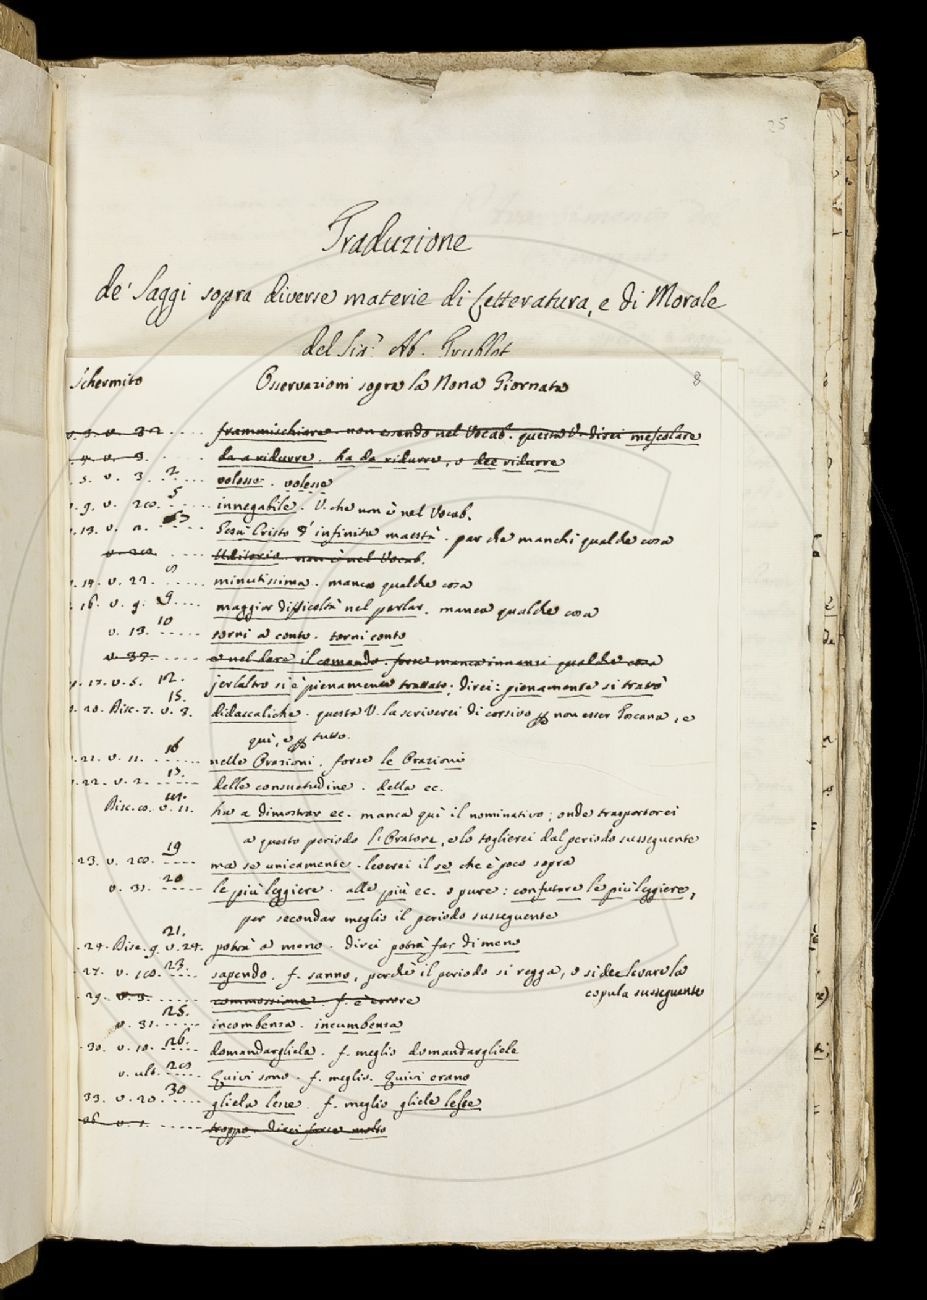 25
Traduzione
de' Saggi sopra diverse materie di Letteratura, e di Morale
del Sig.r Ab. Trublet
Schermito Osservazioni sopra la Nona Giornata 8
v. 32 .... frammischiare. non essendo nel Vocab. questa V. direi mescolare
4. v. 9. .... da a ridurre. ha da ridurre, o dee ridurre
5. v. 3. 2 .... volesso. volesse
9. v. 20. 5 .... innegabile. V. che non è nel Vocab.
13. v. .... Gesù Cristo d'infinita maestà. par che manchi qualche cosa
.... Uditorio. non è nel Vocab.
14. v. 22. 8 .... minutissima. manca qualche cosa
16. v. 9. 9 .... maggior difficoltà nel parlar. manca qualche cosa
v. 13. 10 .... torni a conto. torni conto
v. 37. .... e nel dare il comando. forse manca innanzi qualche cosa
17. v. 5. 12. jerlaltro si è pienamente trattato. direi: pienamente si trattò
20. Disc. 7. v. 8. 15. didascaliche. questa V. la scriverei di corsivo per non esser Toscana, e
quì, e per tutto.
21. v. 11. 16 .... nelle Orazioni. forse le Orazioni
22. v. 2. 17. .... delle consuetudine. della ec.
Disc. 8. v. 11. ha a dimostrar ec. manca quì il nominativo; onde trasporterei
a questo periodo l'Oratore, e lo toglierei dal periodo susseguente
23. v. 20. 19 .... ma se unicamente. leverei il se che è poco sopra
v. 31. 20 .... le più leggiere. alle più ec. o pure: confutare le più leggiere,
per secondar meglio il periodo susseguente
24. Disc. 9. v. 24. 21. potrà a meno. direi potrà far di meno
27. v. 10. 23 .... sapendo. f. sanno, perchè il periodo si regga, o si dee levare la
copula susseguente
29. v. 9. .... commossione. f. è errore
v. 31. 25. .... incombenza. incumbenza
30. v. 10. 26. .... domandargliela. f. meglio domandargliele
v. ult. .... Quivi sono. f. meglio. Quivi erano
33. v. 20. 30 .... gliela lesse. f. meglio gliele lesse
36. v. 1. .... troppo. direi forse molto